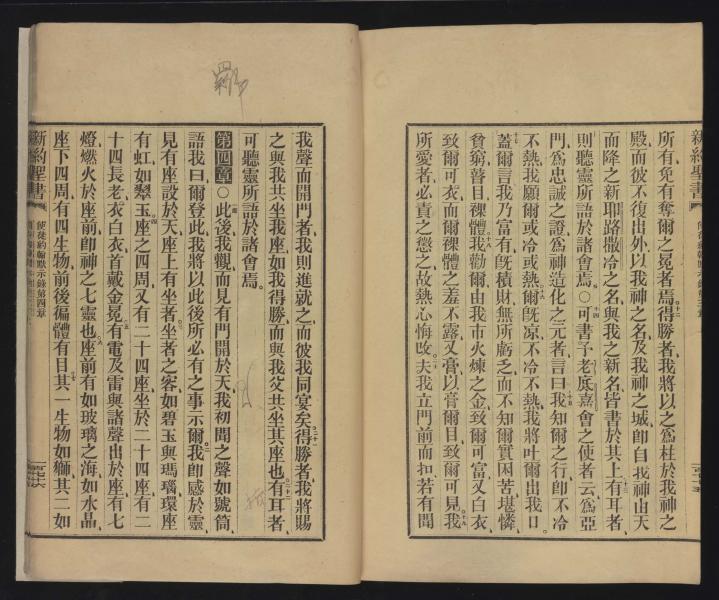 新約聖書
所有免有奪爾之冕者焉得勝者我將以之爲柱於我神之
殿而彼不復出外以我神之名及我神之城卽自我神由天
而降之新耶路撒冷之名與我之新名皆書於其上有耳者
則聽靈所語於諸會焉〇可書予老底嘉會之使者云爲亞
門爲忠誠之證爲神造化之元者言曰我知爾之行卽不冷
不熱我願爾或冷或熱爾旣凉不冷不熱我將吐爾出我口
蓋爾言我乃富有旣積財無所虧之而不知爾實困苦堪憐
貧窮瞽目裸體我勸爾由我市火煉之金致爾可富又白衣
致爾可衣而爾裸體之羞不露又膏以膏爾目致爾可見我
所愛者必責之懲之故熱心悔改夫我立門前而扣若有聞
我聲而開門者我則進就之而彼我同宴矣得勝者我將賜
之與我共坐我座如我得勝而與我父共坐其座也有耳者
可聽靈所語於諸會焉。
第四章〇此後我觀而見有門開於天我初聞之聲如號筒
語我曰爾登此我將以此後所必有之事示爾我卽感於靈
見有座設於天座上有坐者坐者之容如碧玉與瑪瑙環座
有虹如翠玉座之四周又有二十四座坐於二十四座有二
十四長老衣白衣首戴金冕有電及雷與諸聲出於座有七
燈燃火於座前卽神之七靈也座前有如玻璃之海如水晶
座下四周有四生物前後徧體有目其一生物如獅其二如
新約聖書
使徒約翰默示錄第四章